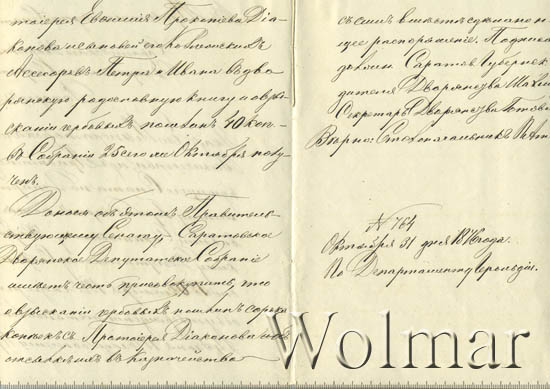 тоіерея Евѳимія Прохопіева Діа-
конова и сыновей его Коллежскихъ
Ассесоровъ Петра и Ивана въ дво-
рянскую родословную книгу и о взы-
сканіи гербовыхъ пошлинъ 40 коп. –
въ Собраніи 25 сего Октября полу-
ченъ.
Донося объ этомъ Правитель-
ствующему Сенату, Саратовское
Дворянское Депутатское Собраніе
имѣетъ честь присовокупить, что
о взысканіи гербовыхъ пошлинъ сорока
копѣекъ съ Протоіерея Діаконова
въ Казначейство
съ симъ вмѣстѣ сдѣлано
щее распоряженіе. Подлин
Саратов Губернск
дителя Дворянства
Секретарь Дворянства
Вѣрно: Столоначальникъ
№ 764
Октября 31 дня года.
По Департаменту Герольдіи.
Wolmar